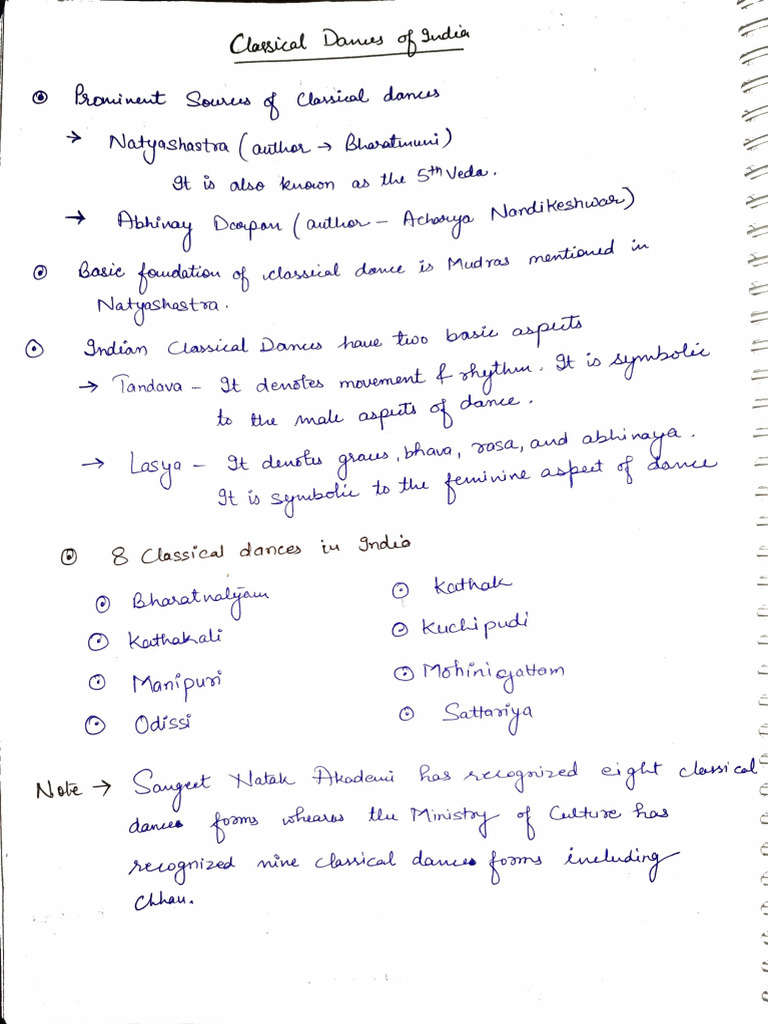 Classical Dances of India
Prominent Sources of Classical dances
→ Natyashastra (author → Bharatmuni)
It is also known as the 5th Veda.
→ Abhinay Darpan (author – Acharya Nandikeshwar)
Basic foundation of classical dance is Mudras mentioned in
Natyashastra.
Indian Classical Dances have two basic aspects
→ Tandava – It denotes movement & rhythm. It is symbolic
to the male aspects of dance.
→ Lasya – It denotes graces, bhava, rasa, and abhinaya.
It is symbolic to the feminine aspect of dance
8 Classical dances in India
Bharatnatyam
Kathak
Kathakali
Kuchipudi
Manipuri
Mohiniyattam
Odissi
Sattariya
Note → Sangeet Natak Akademi has recognized eight classical
dance forms wheares the Ministry of Culture has
recognized nine classical dance forms including
Chhau.